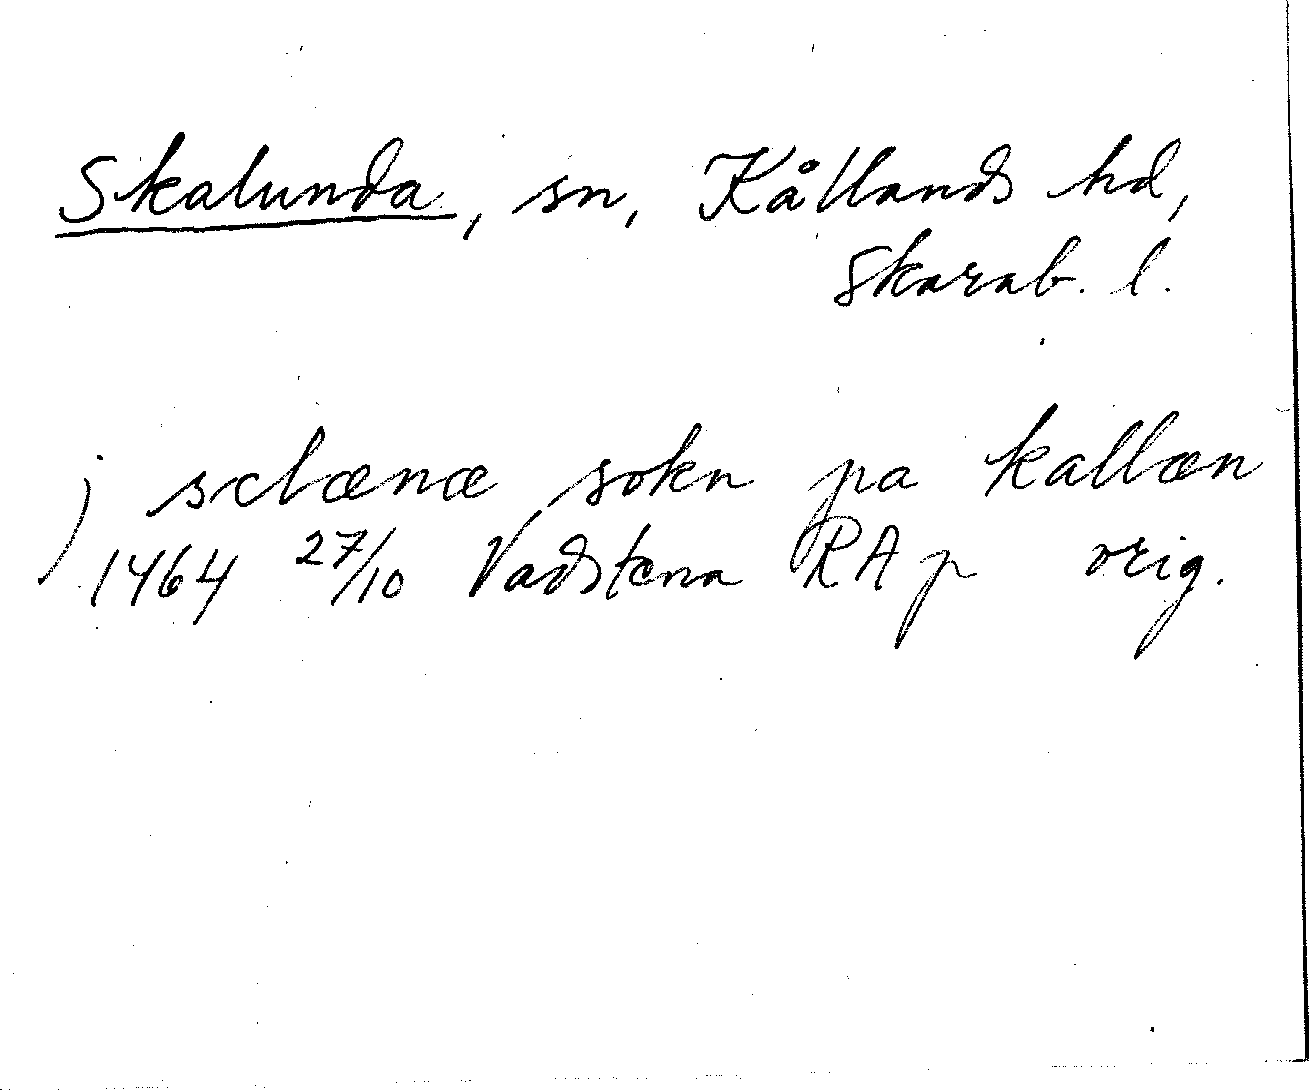 Skalunda, sn, Kållands hd,
Skarab. l.
j sclænæ sokn pa kallæn
1464 27/10 Vadstena RAp orig.